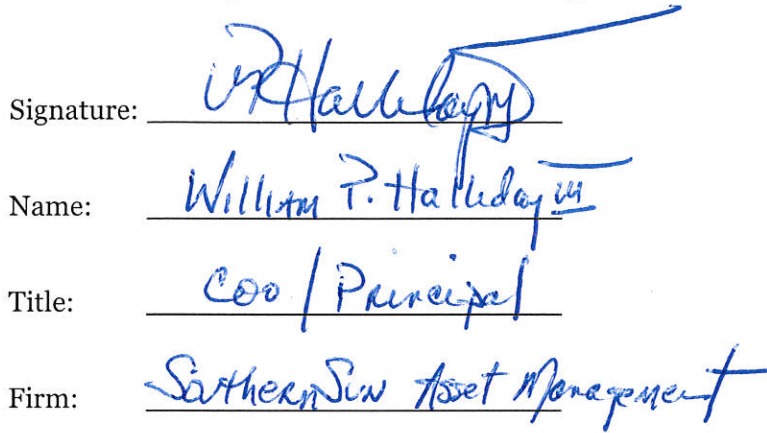 Signature: WPHalliday III
Name: William P. Halliday III
Title: COO / Principal
Firm: SouthernSun Asset Management